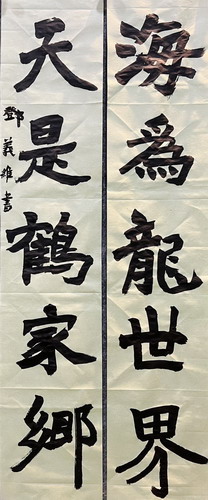 海為龍世界
天是鶴家鄉
鄧義雄書